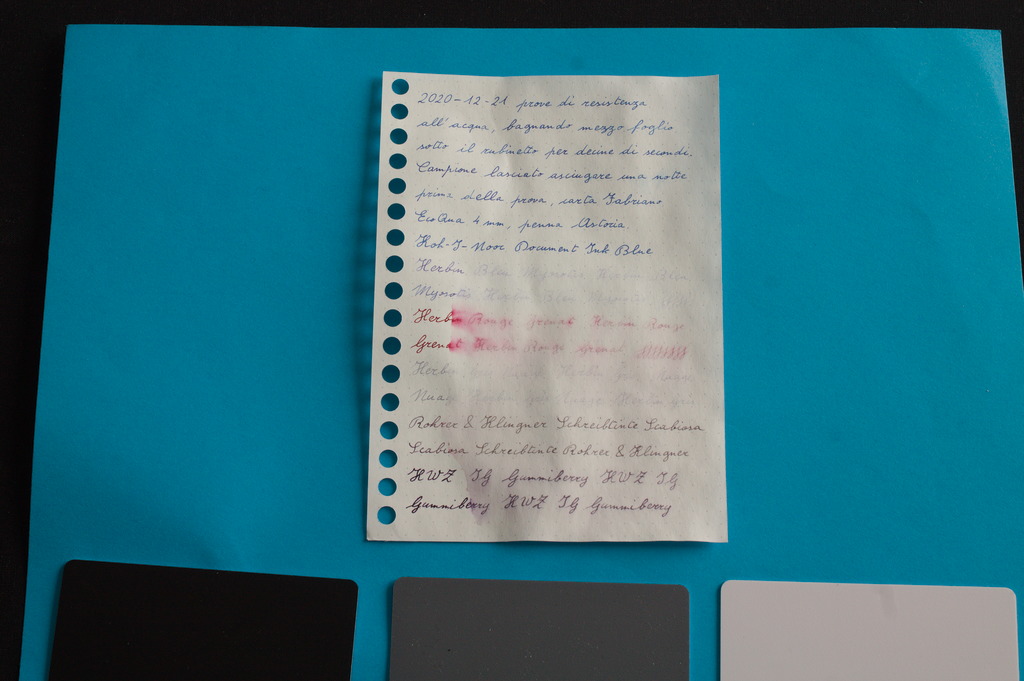 2020-12-21 prove di resistenza
all'acqua, bagnando mezzo foglio
sotto il rubinetto per decine di secondi.
Campione lasciato asciugare una notte
prima della prova, carta Fabriano
EcoQua 4 mm, penna Astoria.
Koh-I-Nooc Document Ink Blue
Herbin Bleu Myosotis Herbin Bleu
Myosotis Herbin Bleu Myosotis
Herbin Rouge grenat Herbin Rouge
Grenat Herbin Rouge Grenat
Herbin Gris Nuage Herbin Gris Nuage
Nuage Herbin Gris Nuage Herbin Gris
Rohrer & Klingner Schreibtinte Scabiosa
Scabiosa Schreibtinte Rohrer & Klingner
HWZ IG Gummiberry HWZ IG
Gummiberry HWZ IG Gummiberry